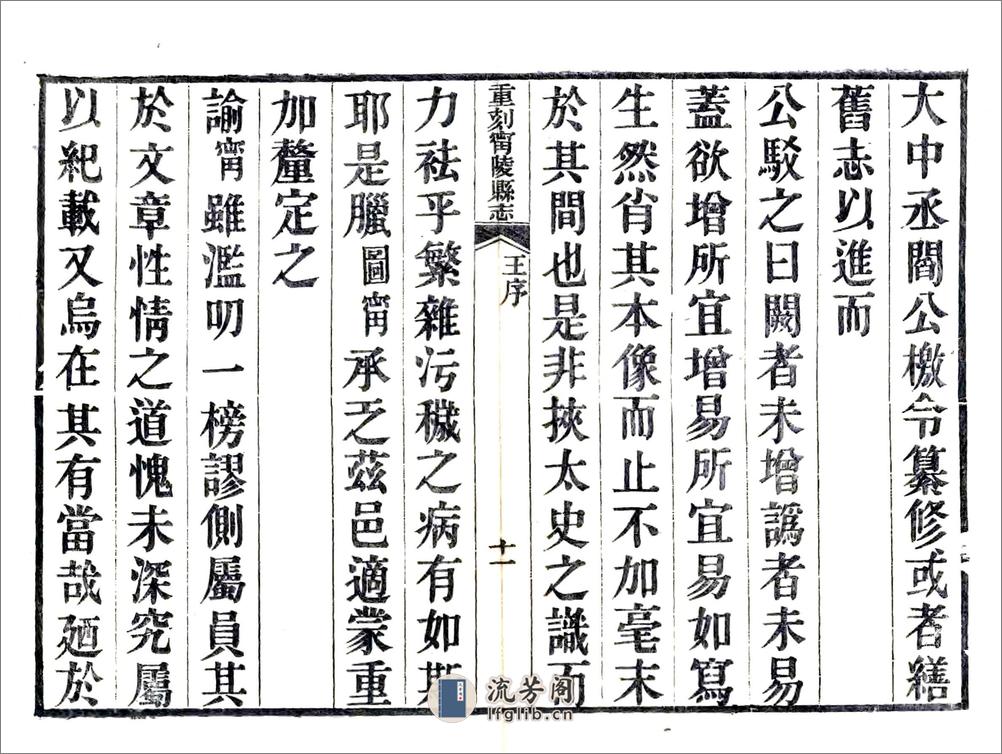 大中丞閻公檄令纂修或者繕
舊志以進而
公駁之曰闕者未增譌者未易
蓋欲增所宜增易所宜易如寫
生然肖其本像而止不加毫末
於其間也是非挾太史之識而
重刻甯陵縣志
王序
十一
力祛乎繁雜污穢之病有如斯
耶是臘圖甯承乏茲邑適蒙重
加釐定之
諭甯雖濫叨一榜謬側屬員其
於文章性情之道愧未深究屬
以紀載又烏在其有當哉廼於
流芳阁
lfglib.cn